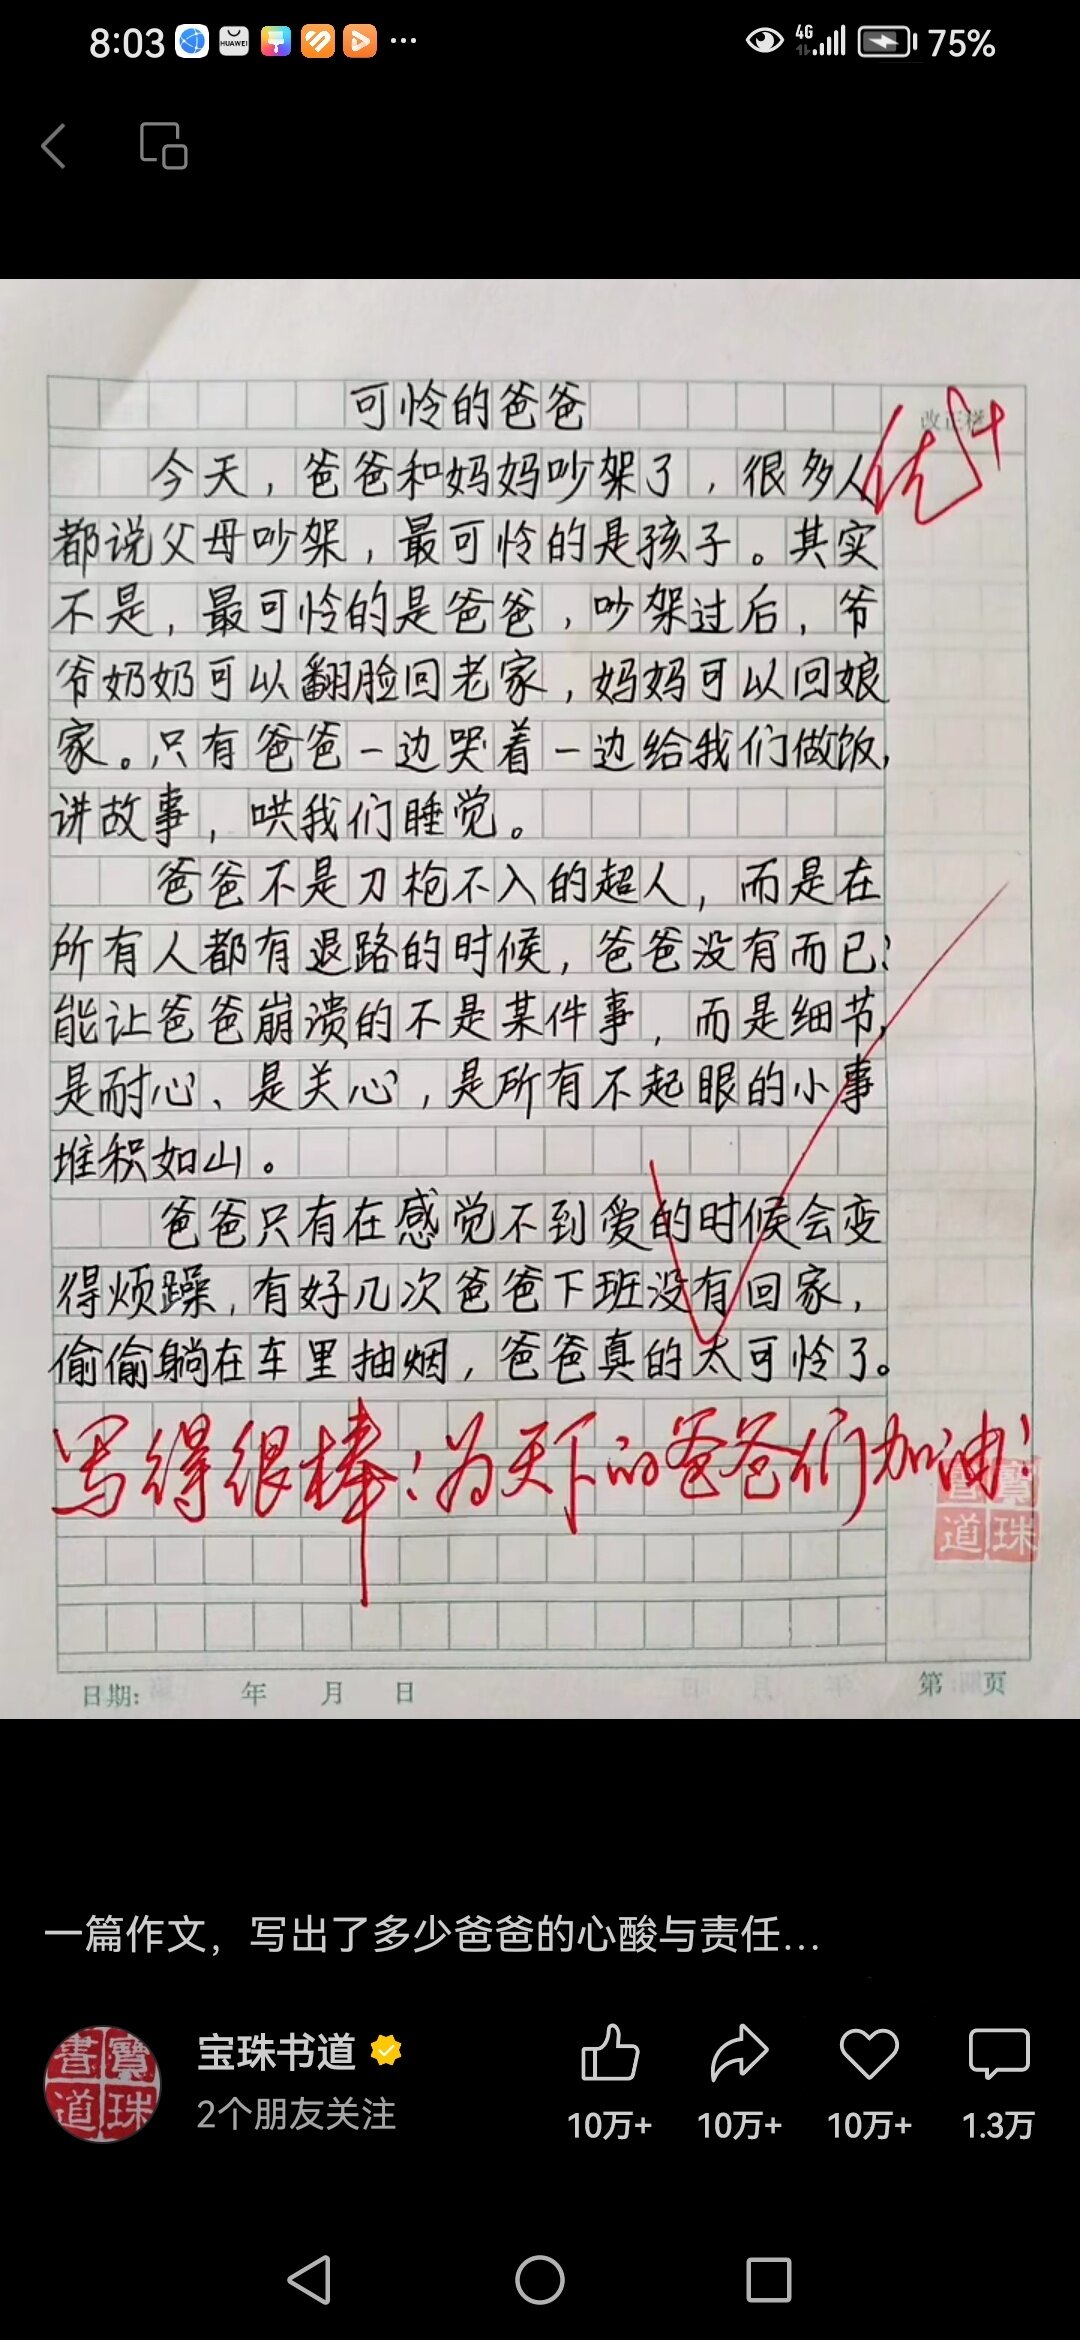 8:03
HUAWEI
4G
75%
可怜的爸爸
改正栏
优+
今天，爸爸和妈妈吵架了，很多人
都说父母吵架，最可怜的是孩子。其实
不是，最可怜的是爸爸，吵架过后，爷
爷奶奶可以翻脸回老家，妈妈可以回娘
家。只有爸爸一边哭着一边给我们做饭，
讲故事，哄我们睡觉。
爸爸不是刀枪不入的超人，而是在
所有人都有退路的时候，爸爸没有而已？
能让爸爸崩溃的不是某件事，而是细节，
是耐心、是关心，是所有不起眼的小事
堆积如山。
爸爸只有在感觉不到爱的时候会变
得烦躁，有好几次爸爸下班没有回家，
偷偷躺在车里抽烟，爸爸真的太可怜了。
写得很棒！为天下的爸爸们加油！
書寶
道珠
日期： 年 月 日
第 页
一篇作文，写出了多少爸爸的心酸与责任...
書寶
道珠
宝珠书道
2个朋友关注
10万+
10万+
10万+
1.3万